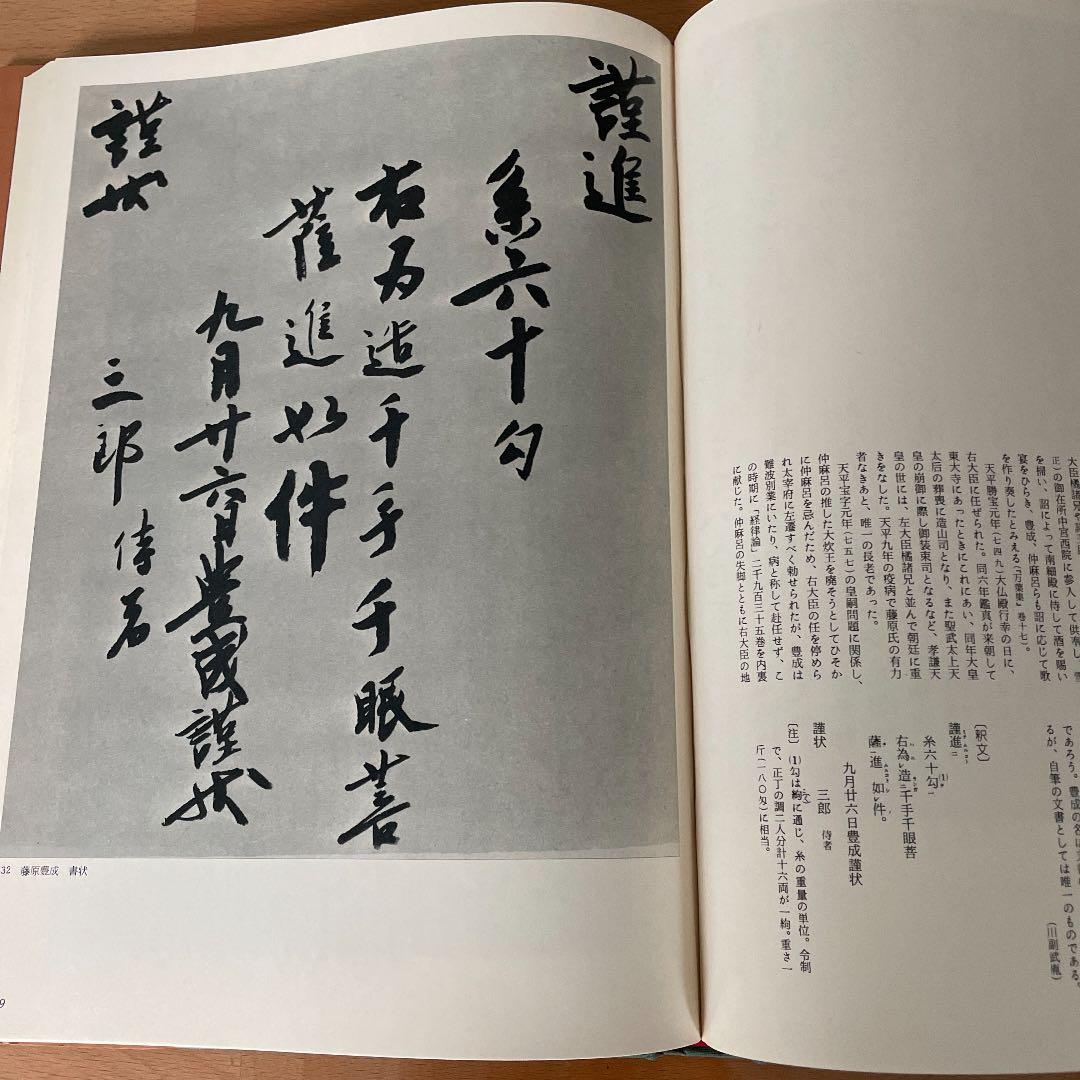 謹進
糸六十勾
右為造千手千眼菩
薩進如件
九月廿六日豊成謹状
三郎侍者
謹状
32 藤原豊成 書状
9
に参入して供奉し、雪
を掃い、詔によって南細殿に侍して酒を賜い
宴をひらき、豊成、仲麻呂らも詔に応じて歌
を作り奏したとみえる(『万葉集』巻十七)。
天平勝宝元年(七四九)大仏殿行幸の日に、
右大臣に任ぜられた。同六年鑑真が来朝して
東大寺にあったときにこれにあい、同年大皇
太后の葬喪に造山司となり、また聖武太上天
皇の崩御に際し御装束司となるなど、孝謙天
皇の世には、左大臣橘諸兄と並んで朝廷に重
きをなした。天平九年の疫病で藤原氏の有力
者なきあと、唯一の長老であった。
天平宝字元年(七五七)の皇嗣問題に関係し、
仲麻呂の推した大炊王を廃そうとしてひそか
に仲麻呂を忌んだため、右大臣の任を停めら
れ太宰府に左遷すべく勅せられたが、豊成は
難波別業にいたり、病と称して赴任せず、こ
の時期に「経律論」二千九百三十五巻を内裏
に献じた。仲麻呂の失脚とともに右大臣の地
であろう。豊成の名は
るが、自筆の文書としては唯一のものである。
(川副武胤)
〔釈文〕
謹進二
糸六十勾(1)一
右為レ造二千手千眼菩
薩一進 如レ件。
九月廿六日豊成謹状
三郎 侍者
謹状
〔注〕(1)勾は絇に通じ、糸の重量の単位。令制
で、正丁の調二人分計十六両が一絇。重さ一
斤(一八〇匁)に相当。